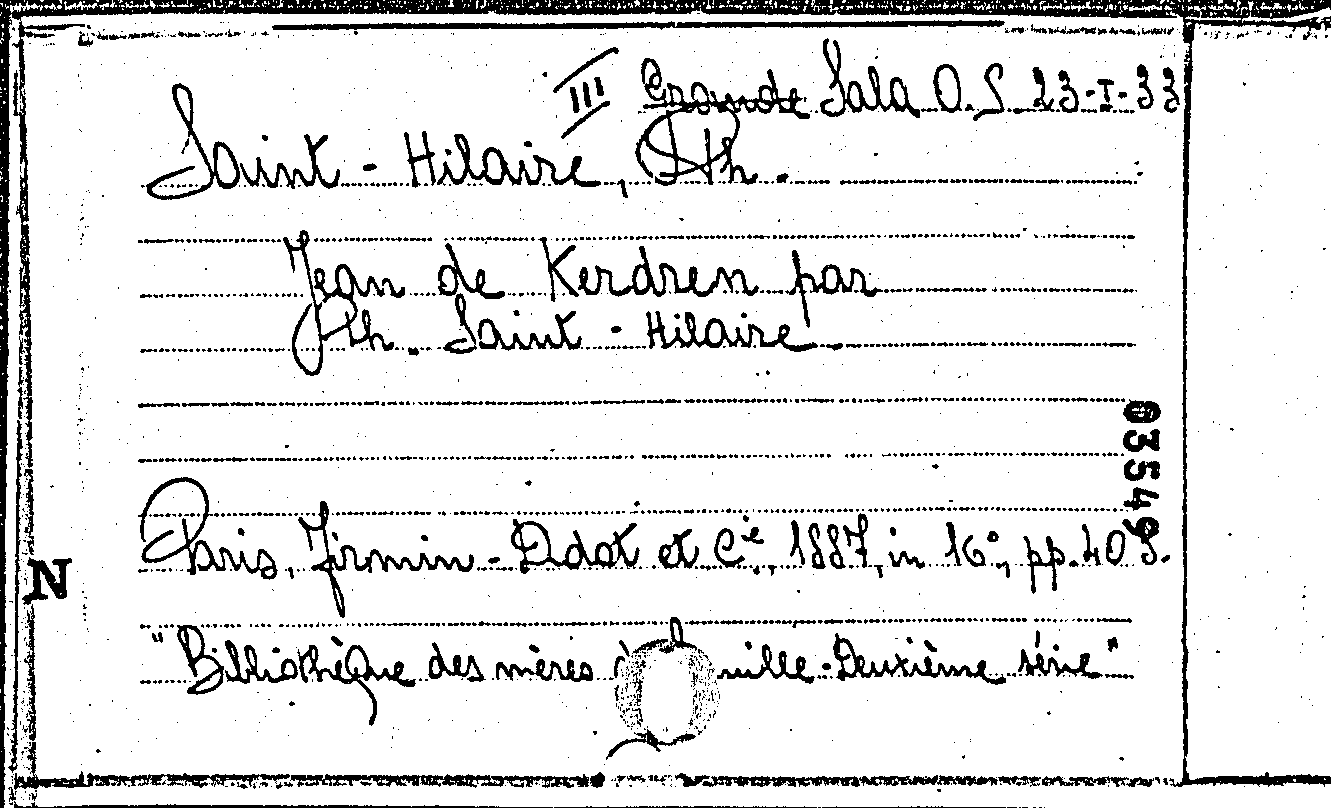 III Grande Sala O. S. 23-I-33
Saint-Hilaire, Ph.
Jean de Kerdren par
Ph. Saint-Hilaire.
03549
Paris, Firmin-Didot et Cie., 1887, in 16°, pp. 408.
N
"Bibliothèque des mères mille-Deuxième série"